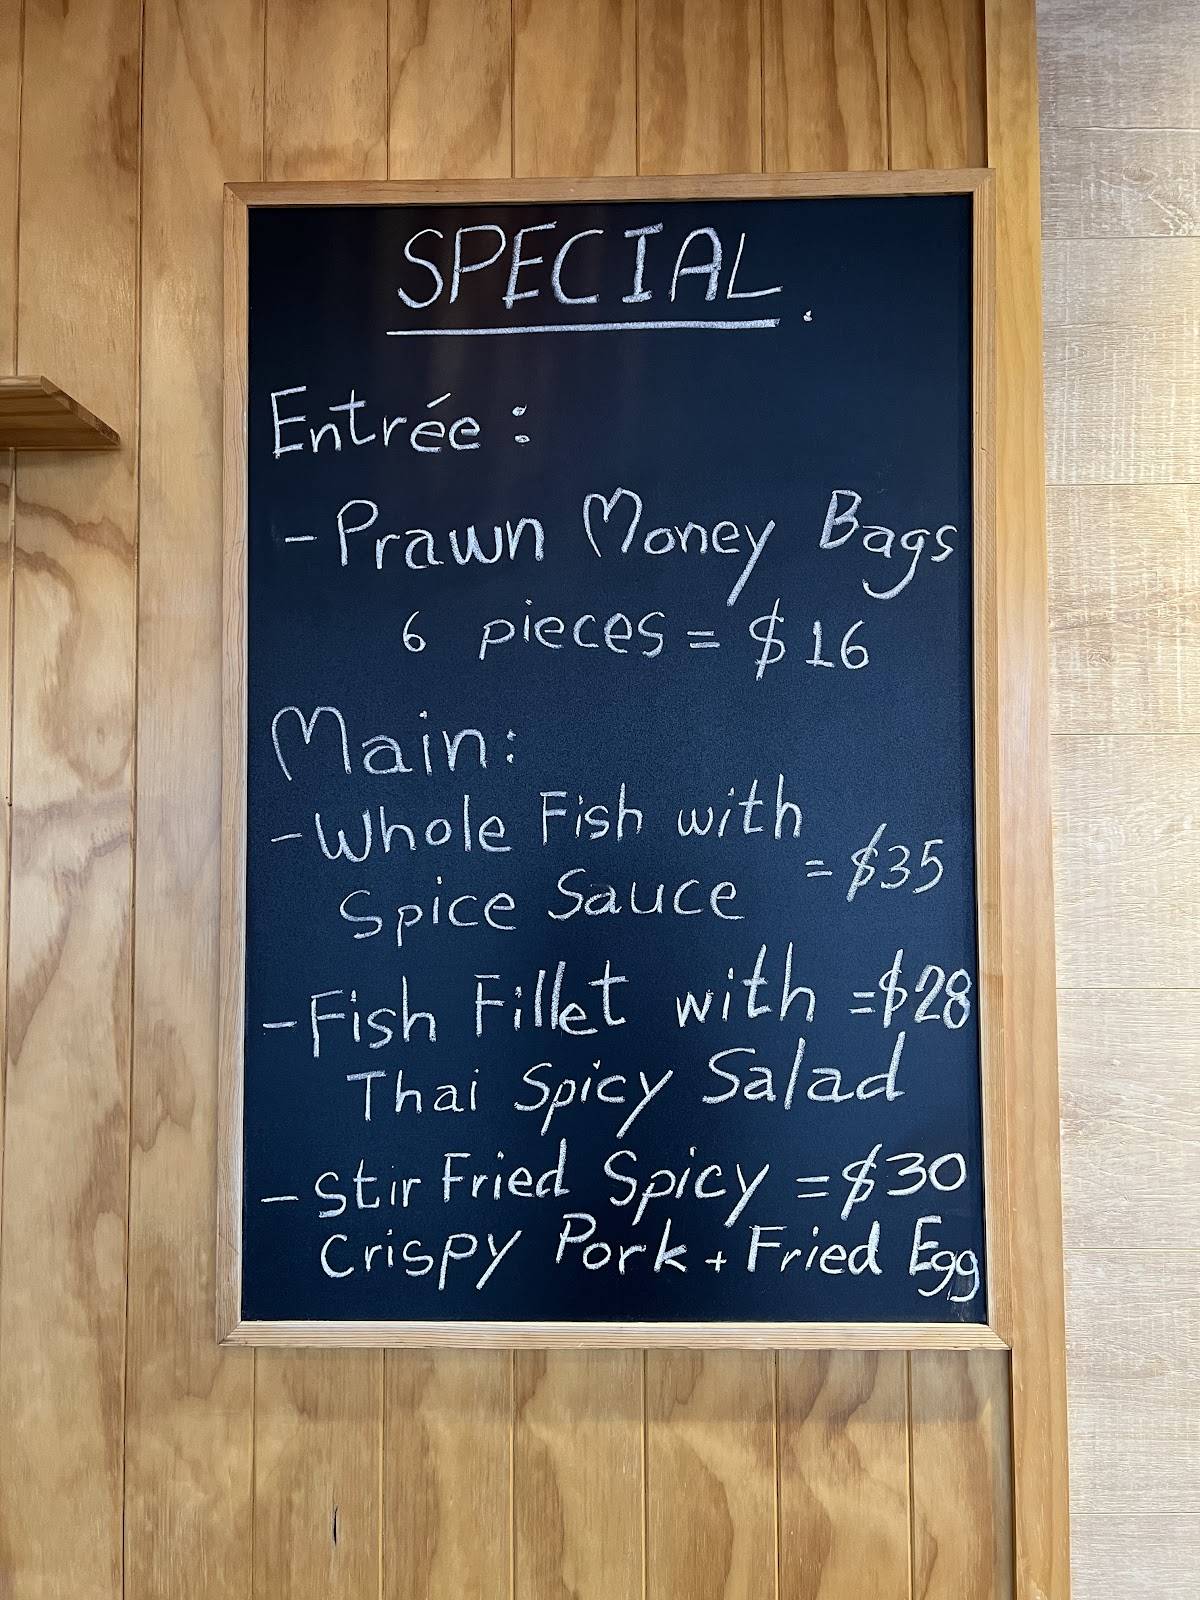 SPECIAL.
Entrée:
- Prawn Money Bags
6 pieces = $16
Main:
- Whole Fish with
Spice Sauce = $35
- Fish Fillet with = $28
Thai Spicy Salad
- Stir Fried Spicy = $30
Crispy Pork + Fried Egg